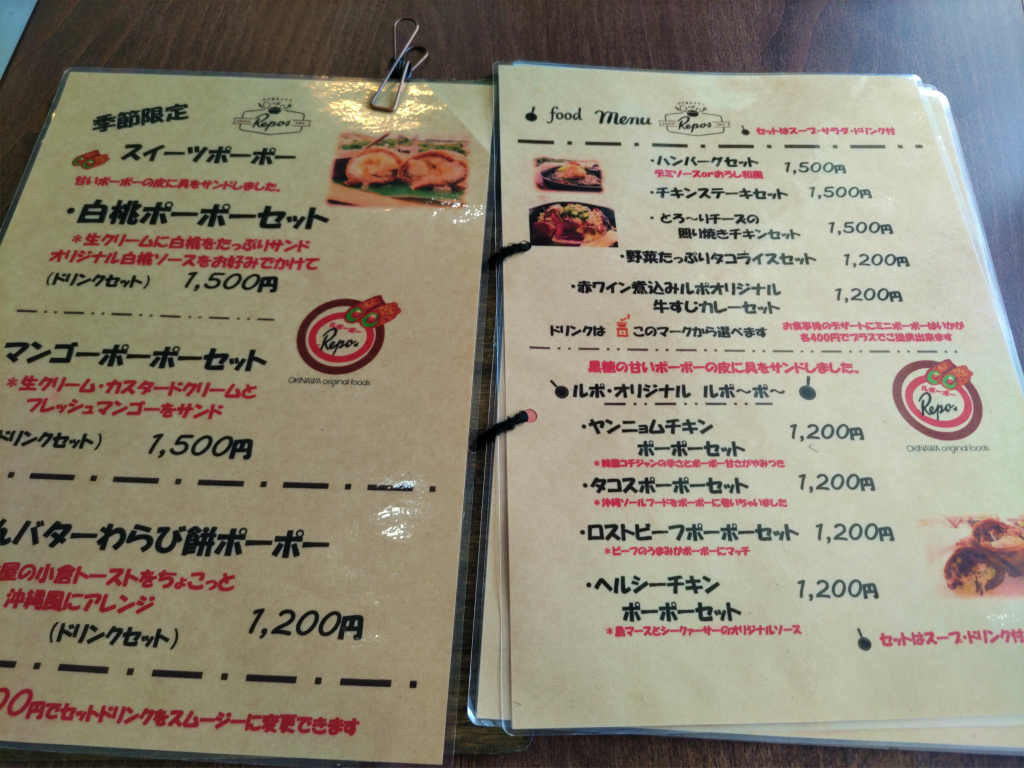 季節限定
Repos
スイーツポーポー
甘いポーポーの皮に具をサンドしました。
・白桃ポーポーセット
*生クリームに白桃をたっぷりサンド
オリジナル白桃ソースをお好みでかけて
(ドリンクセット) 1,500円
マンゴーポーポーセット
*生クリーム・カスタードクリームと
フレッシュマンゴーをサンド
ドリンクセット) 1,500円
ルポーポー
Repos
OKINAWA original foods
バターわらび餅ポーポー
屋の小倉トーストをちょこっと
沖縄風にアレンジ
(ドリンクセット) 1,200円
00円でセットドリンクをスムージーに変更できます
food Menu
Repos
セットはスープ・サラダ・ドリンク付
・ハンバーグセット 1,500円
デミソースorおろし和風
・チキンステーキセット 1,500円
・とろ〜りチーズの
照り焼きチキンセット 1,500円
・野菜たっぷりタコライスセット 1,200円
・赤ワイン煮込みルポオリジナル
牛すじカレーセット 1,200円
ドリンクは このマークから選べます
お食事後のデザートにミニポーポーはいかが
各400円でプラスでご提供出来ます
黒糖の甘いポーポーの皮に具をサンドしました。
ルポ・オリジナル ルポ〜ポ〜
ルポーポー
Repos
OKINAWA original foods
・ヤンニョムチキン
ポーポーセット 1,200円
*韓国コチジャンの辛さとポーポー甘さがやみつき
・タコスポーポーセット 1,200円
*沖縄ソールフードをポーポーに巻いちゃいました
・ロストビーフポーポーセット 1,200円
*ビーフのうまみがポーポーにマッチ
・ヘルシーチキン
ポーポーセット 1,200円
*島マースとシークァーサーのオリジナルソース
セットはスープ・ドリンク付